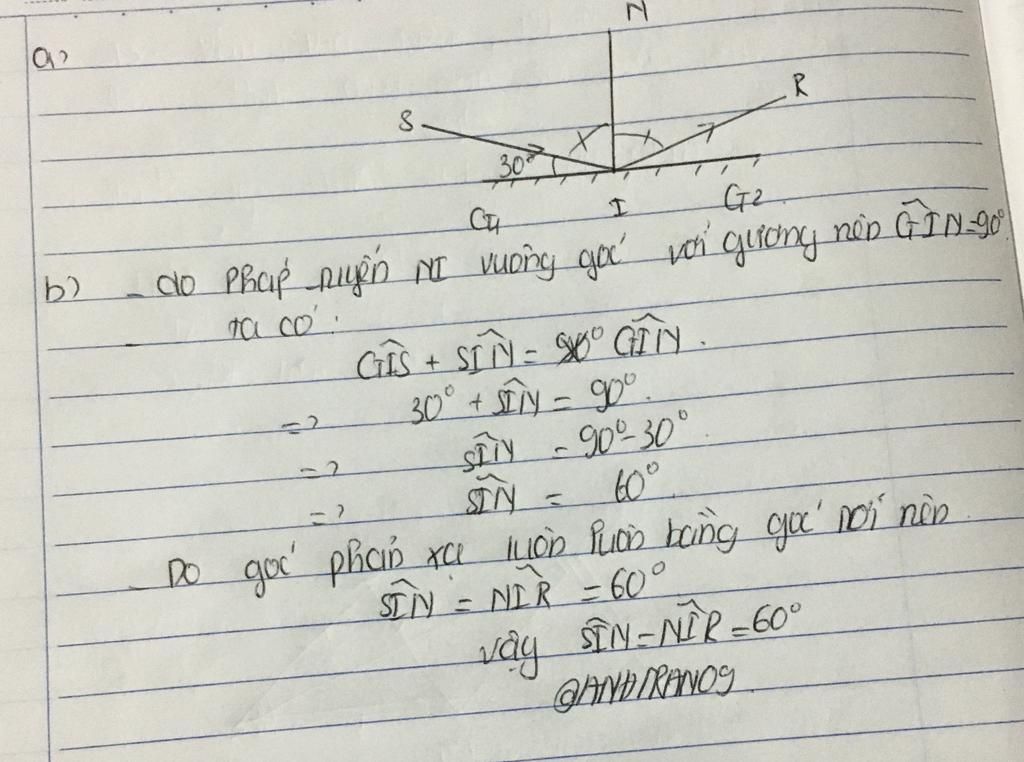 a)
N
S
R
30°
G1
I
G2
b) - do pháp tuyến NI vuông góc với gương nên GÎN=90°
ta có:
GÎS + SÎN = GÎN.
=> 30° + SÎN = 90°.
=> SÎN = 90°-30°.
=> SÎN = 60°.
- Do góc phản xạ luôn luôn bằng góc tới nên
SÎN = NÎR = 60°
vậy SÎN=NÎR=60°